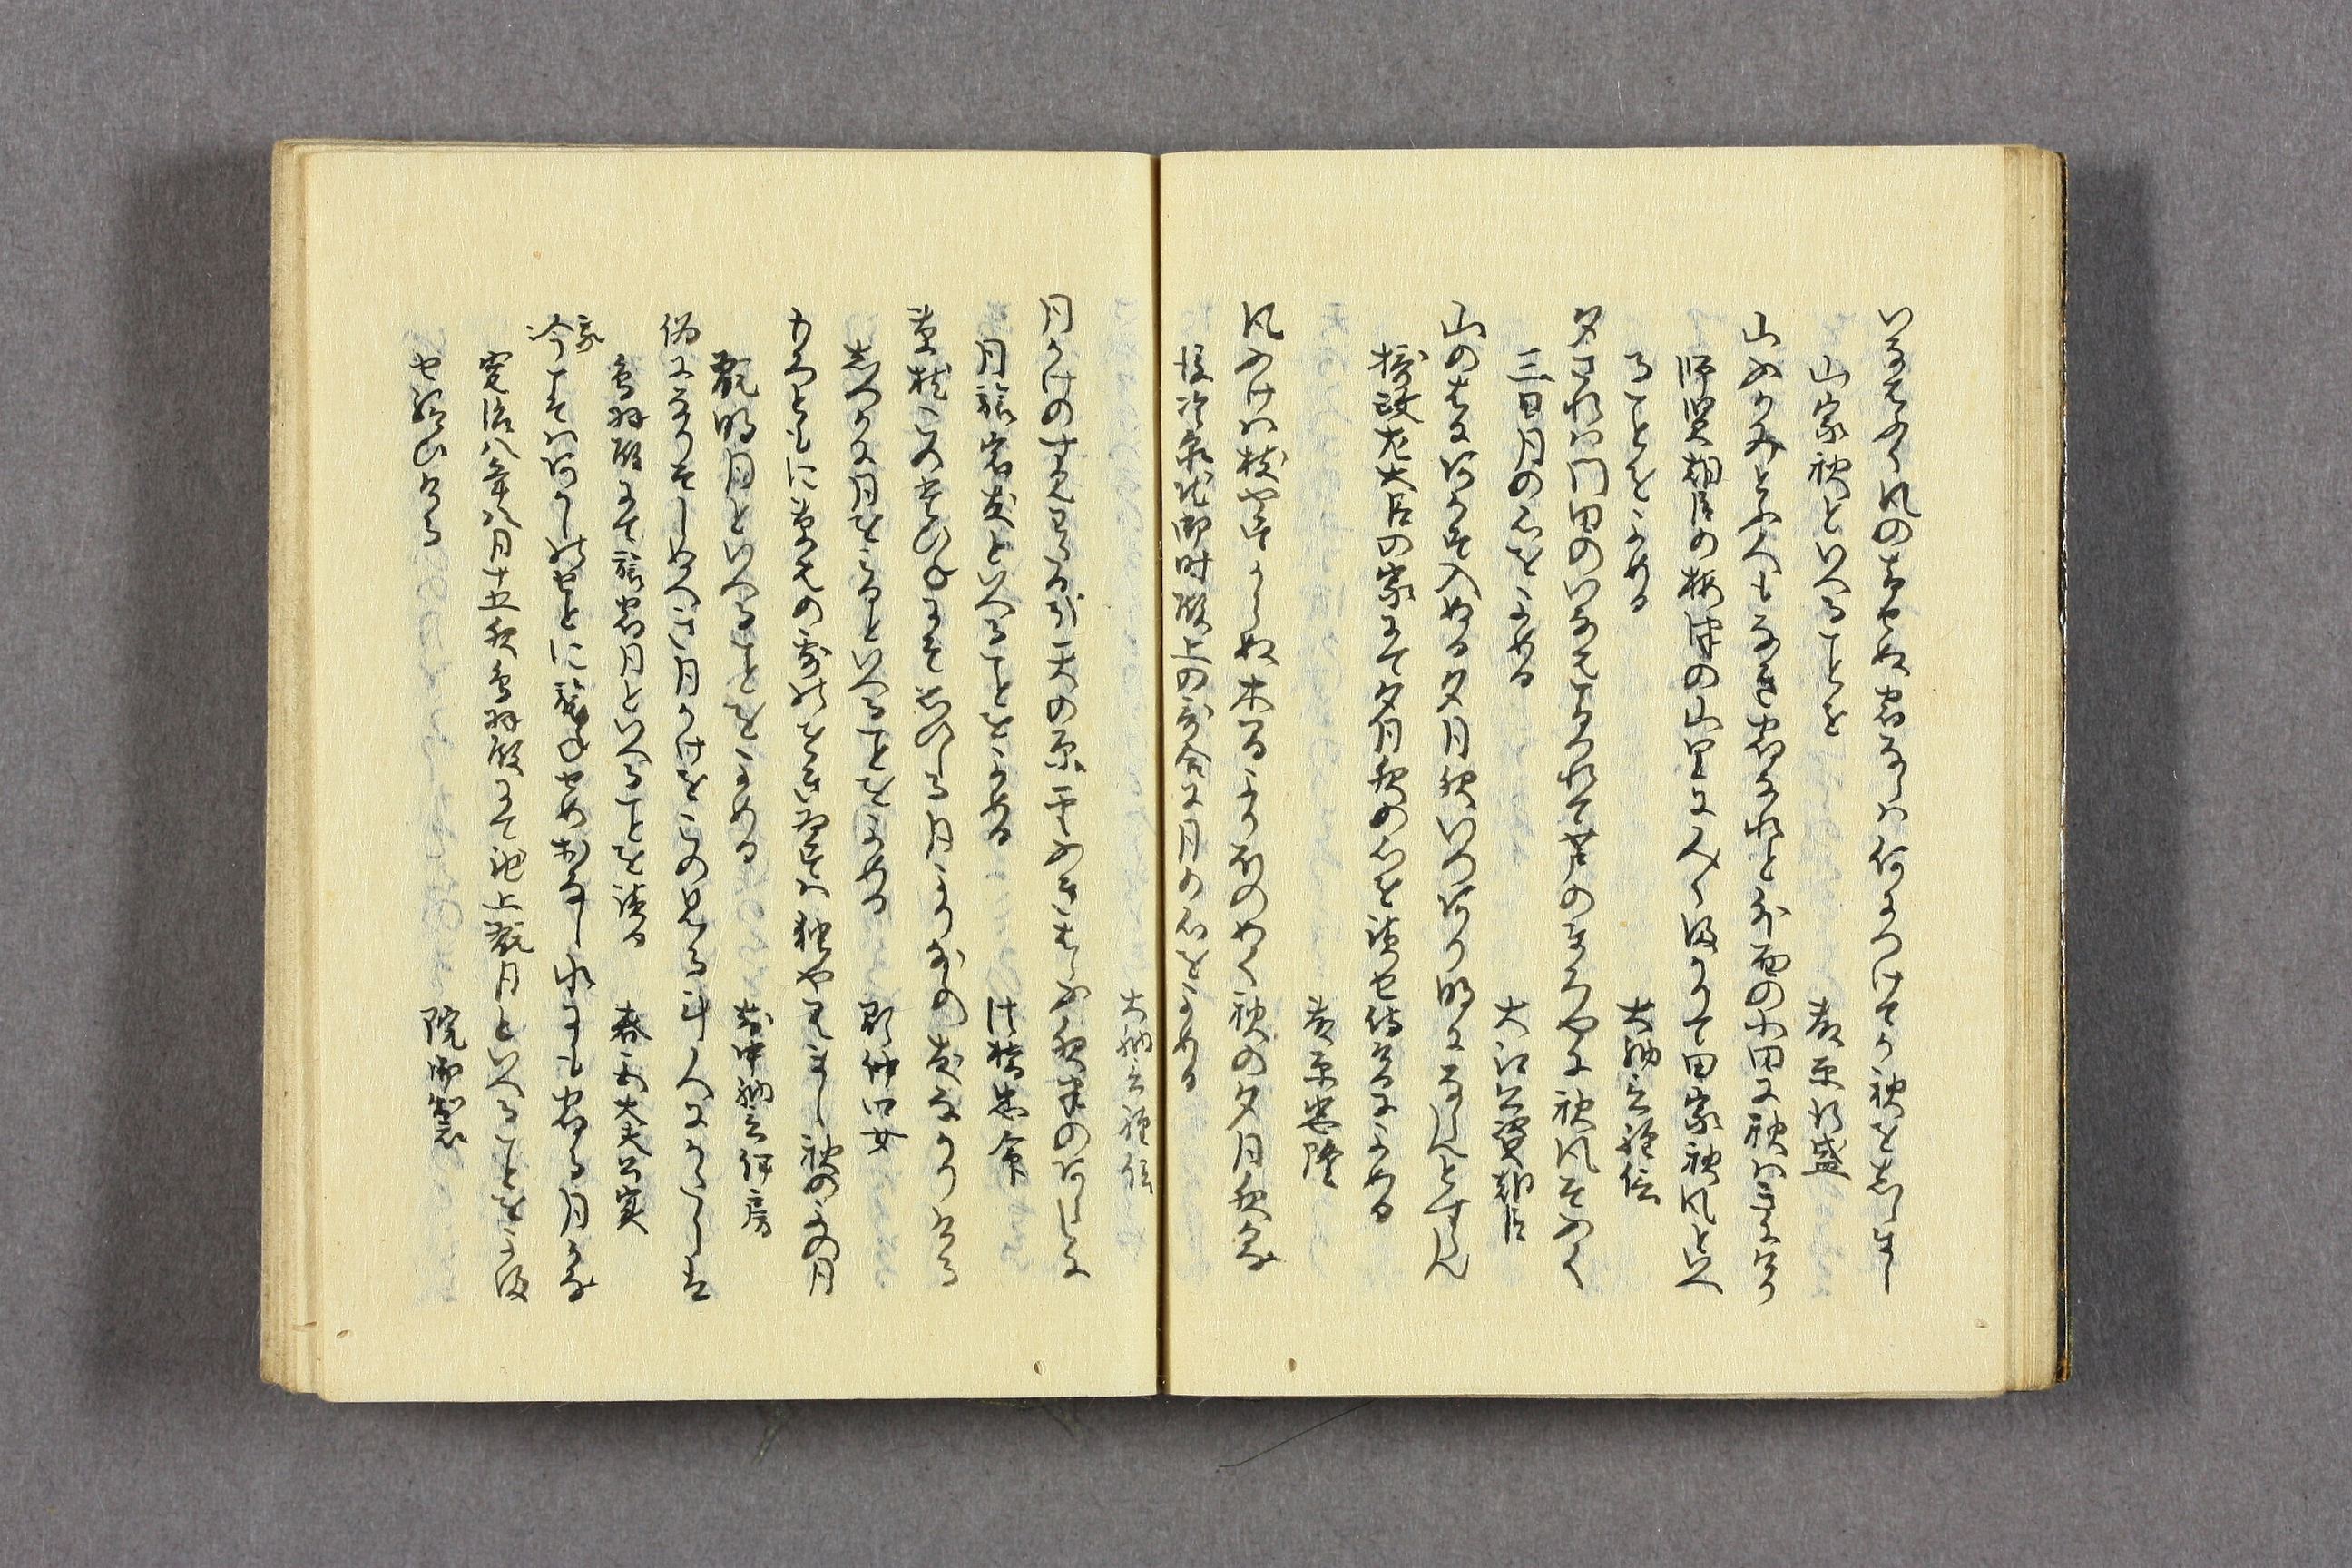 いなはふく風のおとせぬやとならは何につけてか秋をしらまし
山家秋といへることを　藤原行盛
山ふかみとふ人もなきやとなれと外面の小田に秋はきにけり
師賢朝臣の梅津の山里に人々まかりて田家秋風といへ
ることをよめる　大納言経信
夕されは門田のいなはおとつれてあしのまろやに秋風そふく
三日月の心をよめる　大江公資朝臣
山のはにあかす入ぬる夕月夜いつあり明にならんとすらん
摂政左大臣の家にて夕月夜の心を読せ侍けるによめる
藤原忠隆
風ふけは枝やすからぬ木のまよりほのめく秋の夕月夜かな
後冷泉院御時殿上の哥合に月の心をよめる
大納言経信
月かけのすみわたるかな天の原雲ふきはらふ夜半のあらしに
月旅宿友といへることをよめる　法橋忠命
草枕このたひねにそ思ひしる月よりほかの友なかりけり
しつかに月をみるといへることをよめる　顕仲卿女
もろともに草葉の露のおきゐすは独や見まし秋のよの月
翫明月といへることをよめる　前中納言伊房
偽になりそしぬへき月かけをこのみる計人にかたらは
鳥羽殿にて旅宿月といへることを読る　春宮大夫公実
今こそはあかしのせとに旅ねせめおなし水にもやとる月かな
寛治八年八月十五夜鳥羽殿にて池上翫月といへることをよま
せ給ひける　院御製